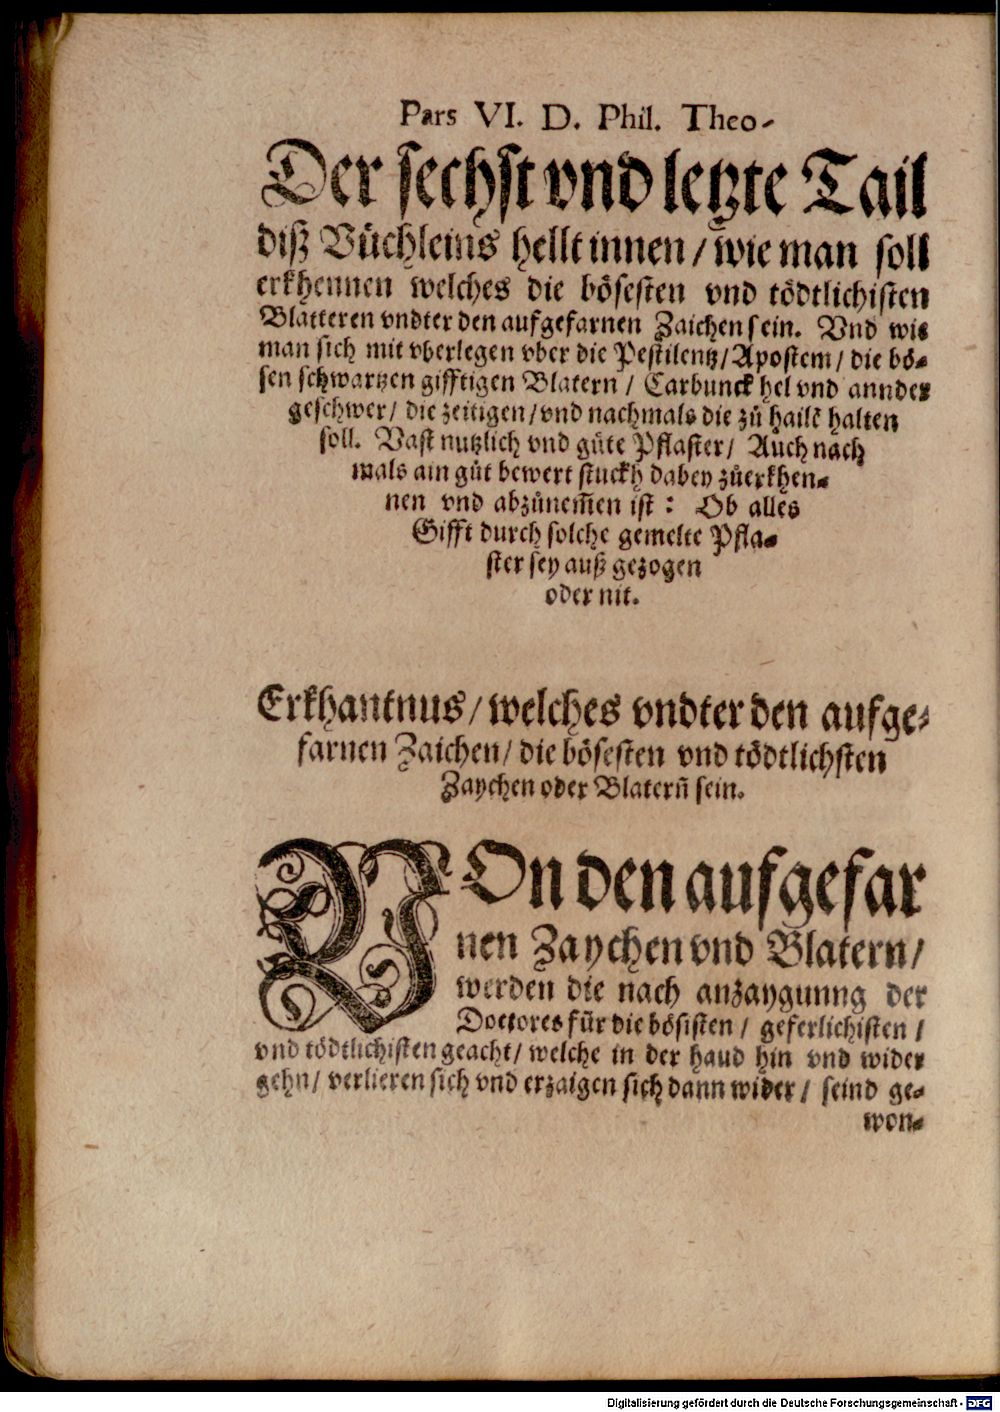 Pars VI. D. Phil. Theo-
Der sechst vnd letzte Tail
diß Büchleins hellt innen / wie man soll
erkhennen welches die bösesten vnd tödtlichisten
Blatteren vndter den aufgefarnen Zaichen sein. Vnd wie
man sich mit vberlegen vber die Pestilentz / Apostem / die bö-
sen schwartzen gifftigen Blatern / Carbunckhel vnd annder
geschwer / die zeitigen / vnd nachmals die zů hailē halten
soll. Vast nutzlich vnd gůte Pflaster / Auch nach
mals ain gůt bewert stuckh dabey zůerkhen-
nen vnd abzůnem̄en ist : Ob alles
Gifft durch solche gemelte Pfla-
ster sey auß gezogen
oder nit.
Erkhantnus / welches vndter den aufge-
farnen Zaichen / die bösesten vnd tödtlichsten
Zaychen oder Blatern̄ sein.
VOn den aufgefar
nen Zaychen vnd Blatern /
werden die nach anzaygunng der
Doctores für die bösisten / geferlichisten /
vnd tödtlichisten geacht / welche in der haud hin vnd wider
gehn / verlieren sich vnd erzaigen sich dann wider / seind ge-
won-
Digitalisierung gefördert durch die Deutsche Forschungsgemeinschaft - DFG